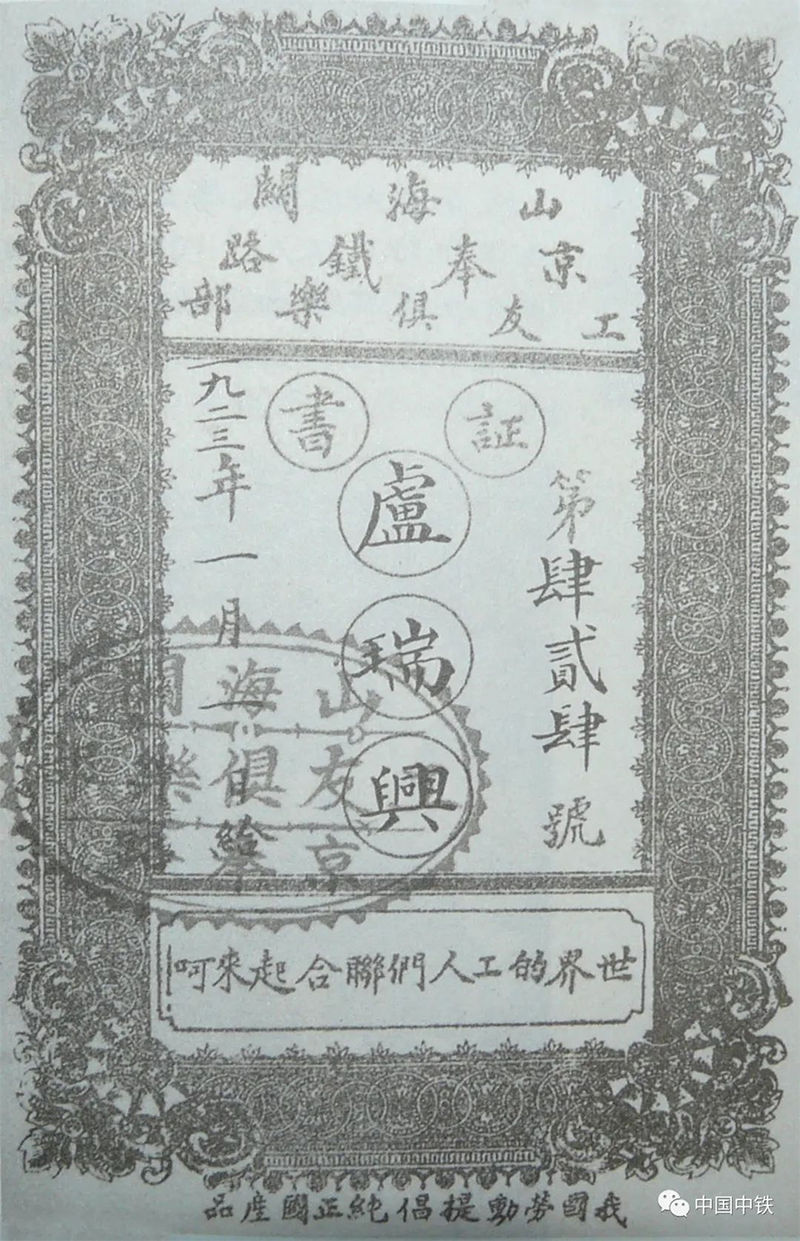 山海關
京奉鐵路
工友俱樂部
証書
第肆貳肆號
盧瑞興
一九二三年一月一日給
山海關
友俱樂
京奉
世界的工人們聯合起來呵!
我國勞動提倡純正國産品
中国中铁